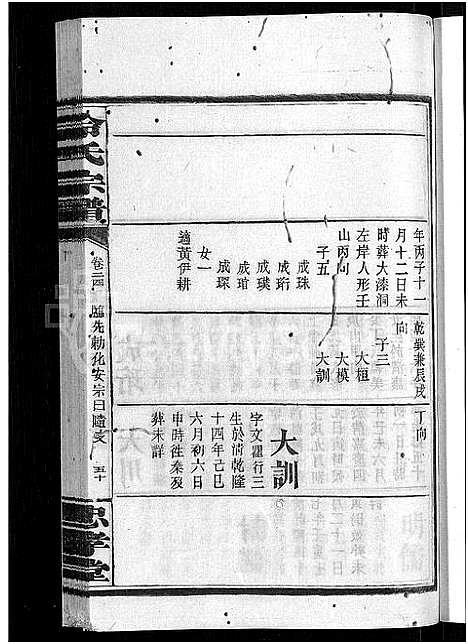 年丙子十一
月十二日未
時葬大漆洞
左岸人形壬
山丙向
子五
成珠
成珩
成璜
成琯
成琛
女一
適黃伊耕
乾巽兼辰戌
向
子三
大桓
大模
大訓
丁向
大訓
字文瓘行三
生於清乾隆
十四年己巳
六月初六日
申時徃秦歿
葬未詳
冷氏宗譜
卷三四
臨先勅化安宗曰隨支
五十
忠孝堂